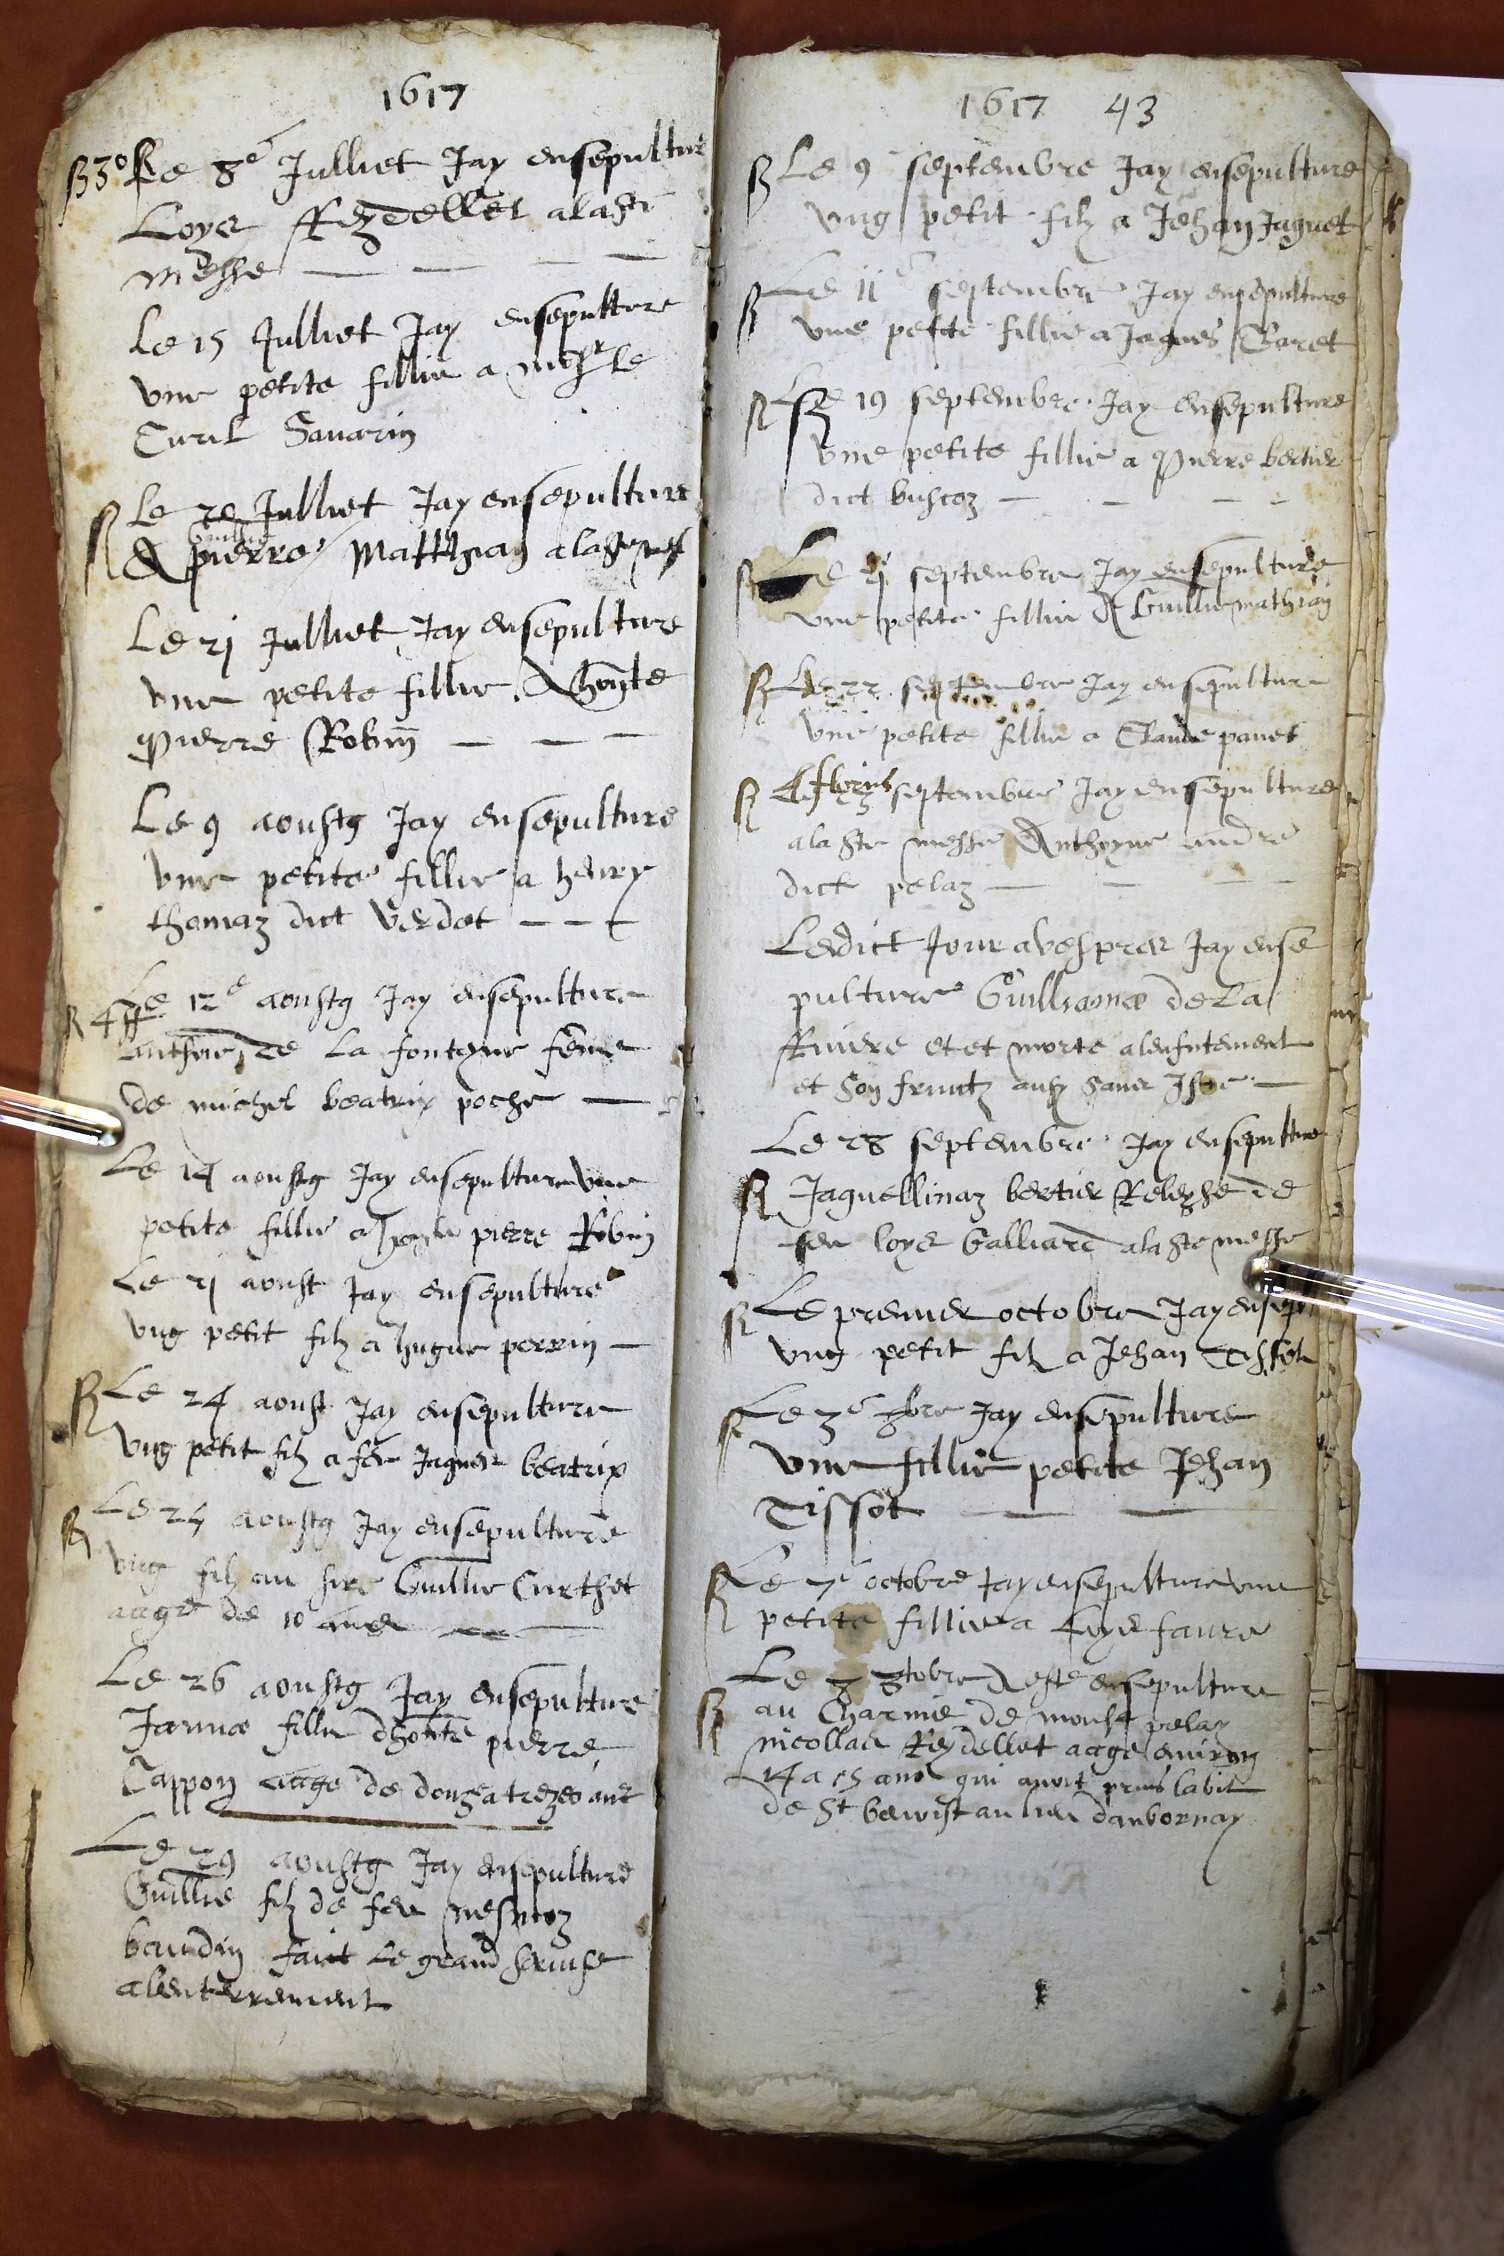 1617
Le 8e Julliet Jay ensepulture
Loys Reydellet alaste
messe
Le 15 Julliet Jay ensepulture
une petite fillie a
Curt Savarin
Le Julliet Jay ensepulture
pierre Matthian alaste
Le 21 Julliet Jay ensepulture
une petite fillie
pierre Robin
Le 9 aoustg Jay ensepulture
une petite fillie a henry
thomaz dict Verdet
Le 12e aoustg Jay ensepulture
de La fonteyne feme
de michel beatrix poche
Le 14 aoustg Jay ensepulture une
petite fillie a pierre Robin
Le 21 aoust Jay ensepulture
ung petit filz a hugue perrin
Le 24 aoust Jay ensepulture
ung petit filz a Jaques beatrix
Le aoustg Jay ensepulture
ung filz au sire Guillie Curthet
aage de 10 ans
Le 26 aoustg Jay ensepulture
fillie dhonte pierre
Tappon aage de douze a treze ans
Le 29 aoustg Jay ensepulture
Guillie filz de feu
baundin faict Le grand
alenterrement
1617 43
Le 9 septembre Jay ensepulture
ung petit filz a Jehan Jaquet
Le 11e septembre Jay ensepulture
une petite fillie a Jaques
Le 19 septembre Jay ensepulture
une petite fillie a pierre bertier
dict
Le septembre Jay ensepulture
une petite fillie A Guillie mathian
Le 22 septembre Jay ensepulture
une petite fillie a Claude panet
septembre Jay ensepulture
ala ste messe Anthoyne andre
dict pelaz
Ledict Jour avesprer Jay ense
pulture Guillieama de La
Riviere et et morte alenfntement
et Son fruictz
Le 28 septembre Jay ensepulture
Jaquellinaz bertier de
feu loys Galliard alaste messe
Le premier octobre Jay ensep
ung petit filz a Jehan Tissot
Le Jay ensepulture
une fillie petite Jehan
Tissot
Le 7e octobre Jay ensepulture une
petite fillie a faure
Le 8tobre A este ensepulture
au Charnie de
nicollas Reydellet aage environ
14 a 15 ans qui avoit prins labit
de St au lieu danbornay